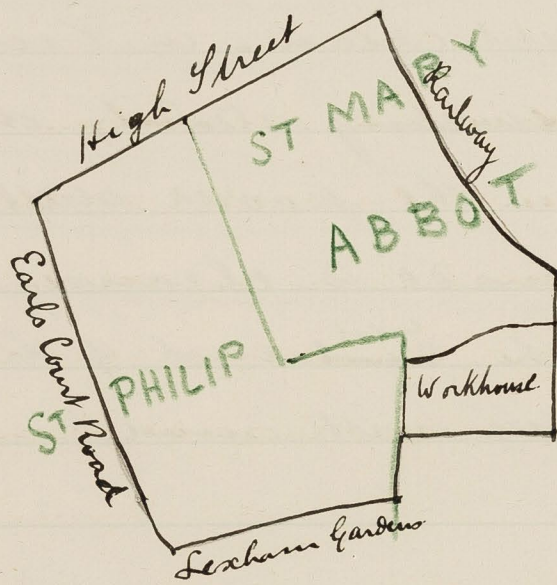 High Street
Railway
ST MARY
ABBOT
Earls Court Road
ST PHILIP
Workhouse
Lexham Gardens